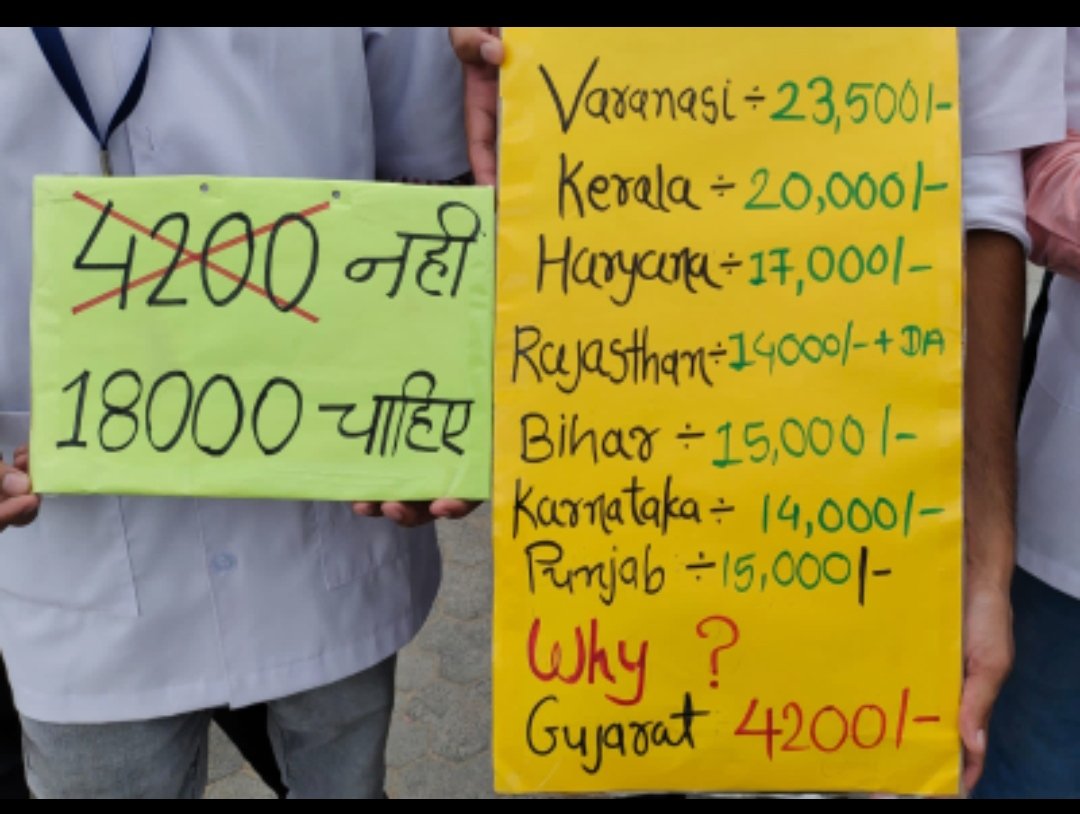 4200 नही
18000 चाहिए
Varanasi ÷ 23,500/-
Kerala ÷ 20,000/-
Haryana ÷ 17,000/-
Rajasthan ÷ 14000/- + DA
Bihar ÷ 15,000/-
Karnataka ÷ 14,000/-
Punjab ÷ 15,000/-
Why ?
Gujarat 4200/-